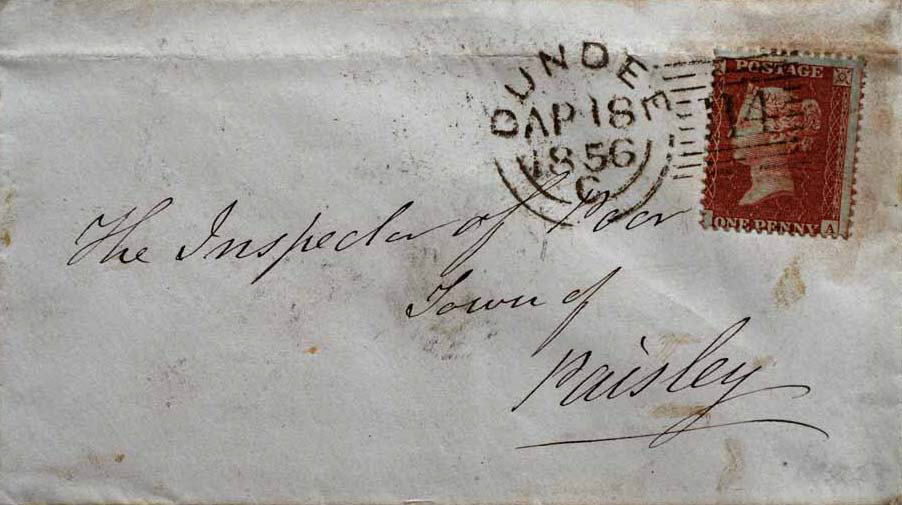 DUNDEE
AP 18
1856
C
POSTAGE
ONE PENNY
A
The Inspector of Poor
Town of
Paisley